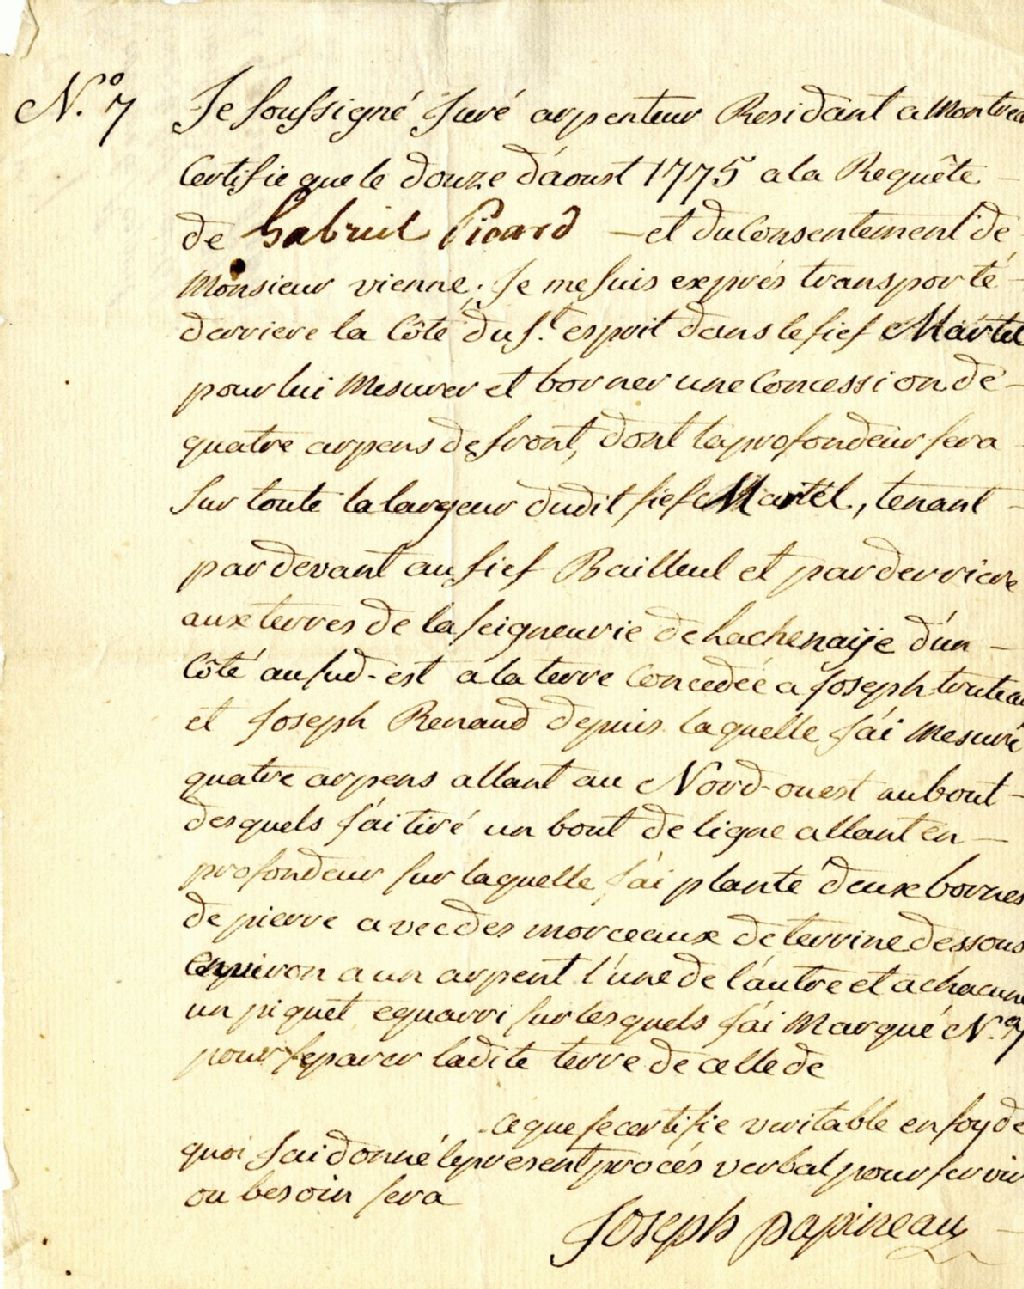 N.º 7 Je soussigné Juré arpenteur Residant a Montrea
Certifie que le douze d'aoust 1775 a la Requête
de Gabriel Picard — et du Consentement de
Monsieur vienne. Je me suis exprés transporté
derriere la Côte du St. esprit dans le fief Martel
pour lui Mesurer et borner une Concession de
quatre arpens de front, dont la profondeur sera
Sur toute la largeur dudit fief Martel, tenant
par devant au fief Bailleul et par derriere
aux terres de la seigneurie de Lachenaije d'un
Côté au sud-est a la terre Concedée a Joseph
et Joseph Renaud depuis laquelle j'ai Mesuré
quatre arpens allant au Nord-ouest au bout
desquels j'ai tiré un bout de ligne allant en
profondeur sur laquelle j'ai planté deux bornes
de pierre avec des morceaux de terrine dessous
environ a un arpent l'une de l'autre et a chacune
un piquet equarri sur lesquels j'ai Marqué N.º 7
pour separer ladite terre de celle de
ce que je certifie veritable en foy de
quoi J'ai donné le present procés verbal pour servir
ou besoin sera
Joseph Papineau